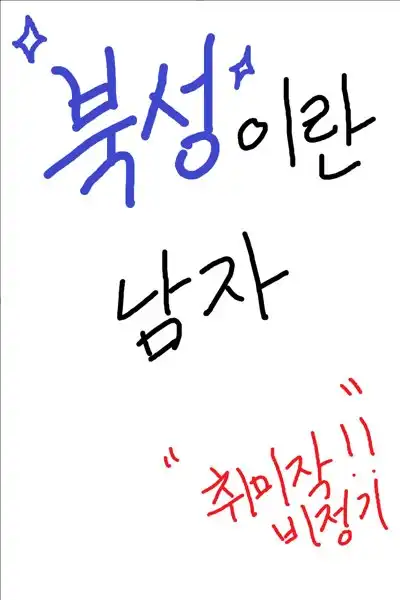 북성이란
남자
"취미작!!
비정기"